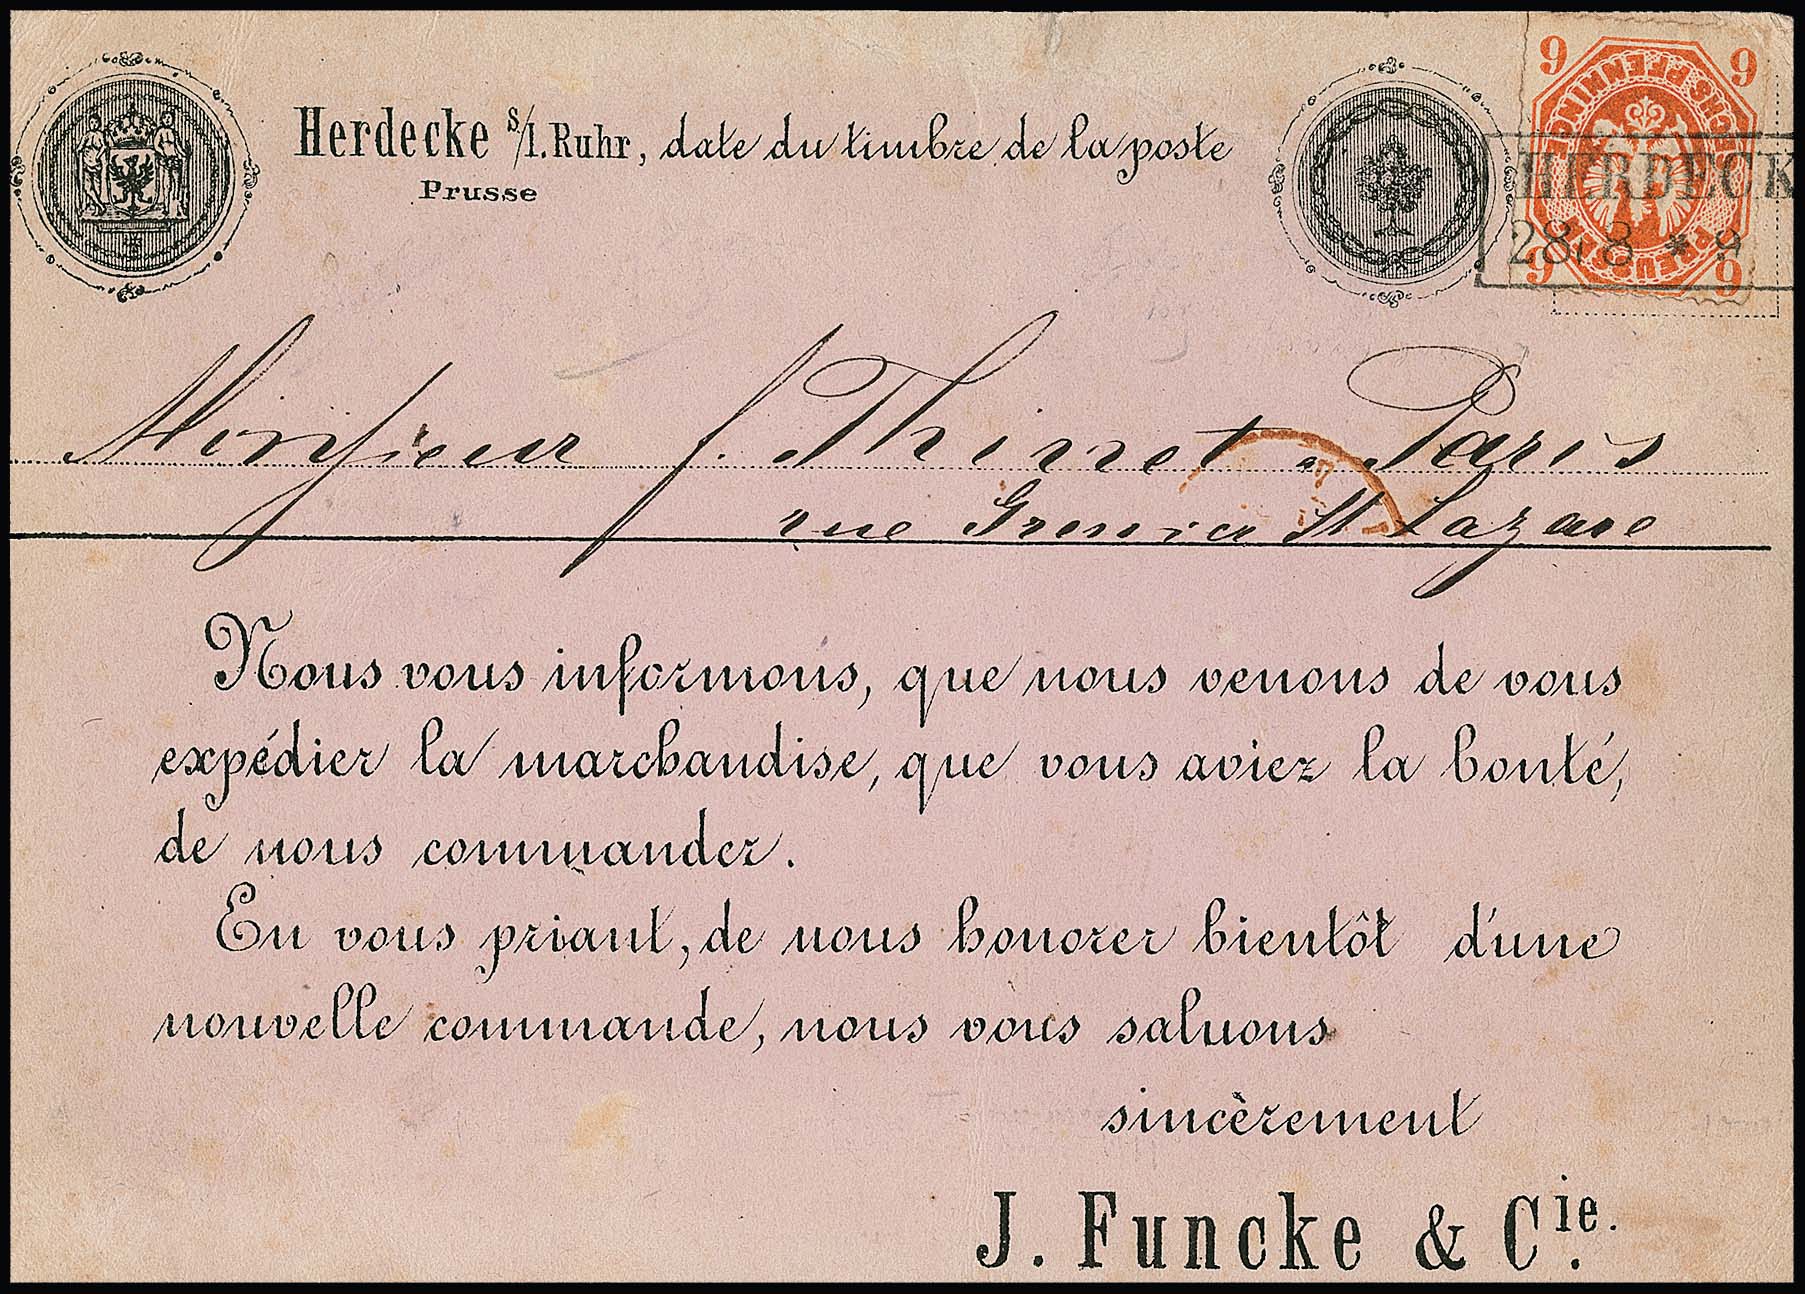 Herdecke s./l. Ruhr, date du timbre de la poste
Prusse
6 6
PREUSSEN SECHS PFENNINGE
6 6
HERDECK
28 8 * 9
Monsieur f. Thinet a Paris
rue Grenier St Lazare
Nous vous informons, que nous venons de vous
expédier la marchandise, que vous aviez la bonté,
de nous commander.
En vous priant, de nous honorer bientôt d'une
nouvelle commande, nous vous saluons
sincèrement
J. Funcke & Cie.